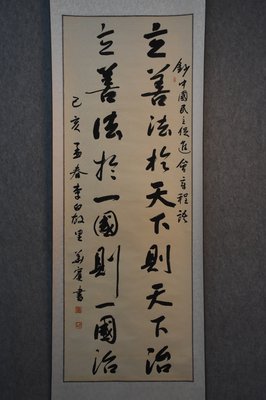 鈔中國民主促進會章程語
立善法於天下則天下治
立善法於一國則一國治
己亥孟春李白故里
書